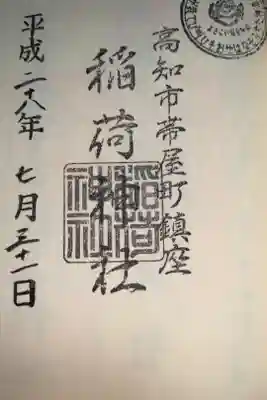 高知市帯屋町鎮座
稲荷神社
稲荷神社
平成二十八年七月三十一日